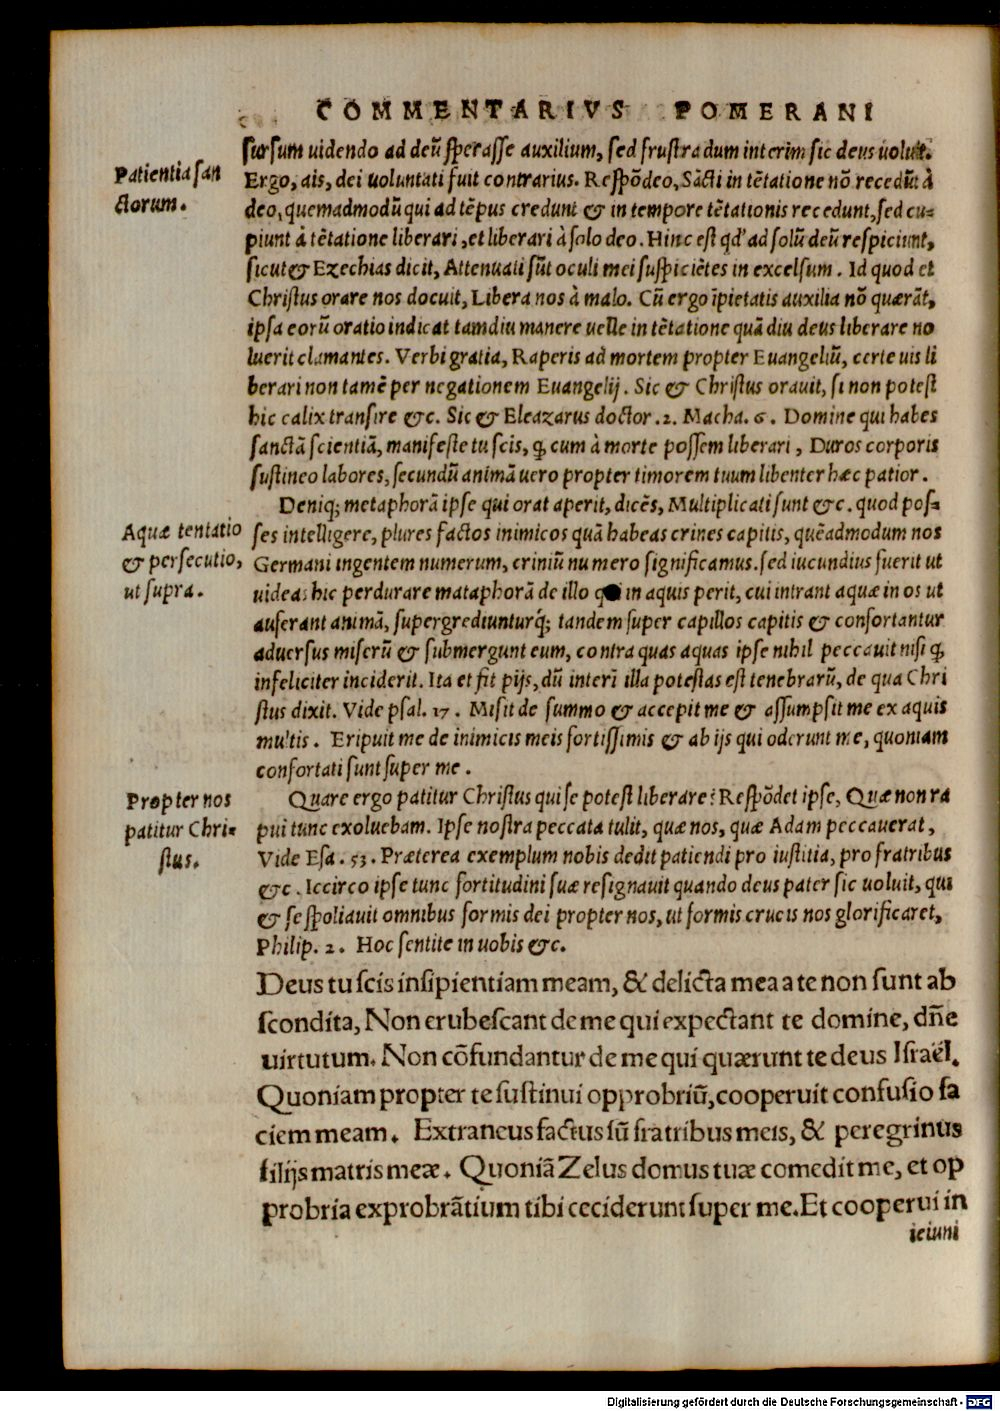 COMMENTARIVS POMERANI
sursum uidendo ad deũ sperasse auxilium, sed frustra dum interim sic deus uoluit.
Patientia san
ctorum.
Ergo, ais, dei uoluntati fuit contrarius. Respõdeo, Sãcti in tẽtatione nõ recedũt à
deo, quemadmodũ qui ad tẽpus credunt & in tempore tẽtationis recedunt, sed cu-
piunt à tẽtatione liberari, et liberari à solo deo. Hinc est qd' ad solũ deũ respiciunt,
sicut & Ezechias dicit, Attenuati sũt oculi mei suspiciẽtes in excelsum. Id quod et
Christus orare nos docuit, Libera nos à malo. Cũ ergo ĩpietatis auxilia nõ quærãt,
ipsa eorũ oratio indicat tamdiu manere uelle in tẽtatione quã diu deus liberare no
luerit clamantes. Verbi gratia, Raperis ad mortem propter Euangeliũ, certe uis li
berari non tamẽ per negationem Euangelij. Sic & Christus orauit, si non potest
hic calix transire &c. Sic & Eleazarus doctor .2. Macha. 6. Domine qui habes
sanctã scientiã, manifeste tu scis, ꝙ cum à morte possem liberari, Duros corporis
sustineo labores, secundũ animã uero propter timorem tuum libenter hæc patior.
Deniq; metaphorã ipse qui orat aperit, dicẽs, Multiplicati sunt &c. quod pos-
Aquæ tentatio
& persecutio,
ut supra.
ses intelligere, plures factos inimicos quã habeas crines capitis, quẽadmodum nos
Germani ingentem numerum, criniũ numero significamus. sed iucundius fuerit ut
uideas hic perdurare mataphorã de illo in aquis perit, cui intrant aquæ in os ut
auferant animã, supergrediunturq́; tandem super capillos capitis & confortantur
aduersus miserũ & submergunt eum, contra quas aquas ipse nihil peccauit nisi ꝙ
infeliciter inciderit. Ita et fit pijs, dũ interĩ illa potestas est tenebrarũ, de qua Chri
stus dixit. Vide psal. 17. Misit de summo & accepit me & assumpsit me ex aquis
multis. Eripuit me de inimicis meis fortissimis & ab ijs qui oderunt me, quoniam
confortati sunt super me.
Propter nos
patitur Chri-
stus.
Quare ergo patitur Christus qui se potest liberare? Respõdet ipse, Quæ non ra
pui tunc exoluebam. Ipse nostra peccata tulit, quæ nos, quæ Adam peccauerat,
Vide Esa. 53. Præterea exemplum nobis dedit patiendi pro iustitia, pro fratribus
&c. Iccirco ipse tunc fortitudini suæ resignauit quando deus pater sic uoluit, qui
& se spoliauit omnibus formis dei propter nos, ut formis crucis nos glorificaret,
Philip. 2. Hoc sentite in uobis &c.
Deus tu scis insipientiam meam, & delicta mea a te non sunt ab
scondita, Non erubescant de me qui expectant te domine, dñe
uirtutum. Non cõfundantur de me qui quærunt te deus Israël.
Quoniam propter te sustinui opprobriũ, cooperuit confusio fa
ciem meam. Extraneus factus sũ fratribus meis, & peregrinus
filijs matris meæ. Quoniã Zelus domus tuæ comedit me, et op
probria exprobrãtium tibi ceciderunt super me. Et cooperui in
ieiuni
Digitalisierung gefördert durch die Deutsche Forschungsgemeinschaft - DFG